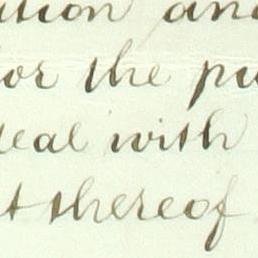 ution and
for the pu
deal with
t thereof